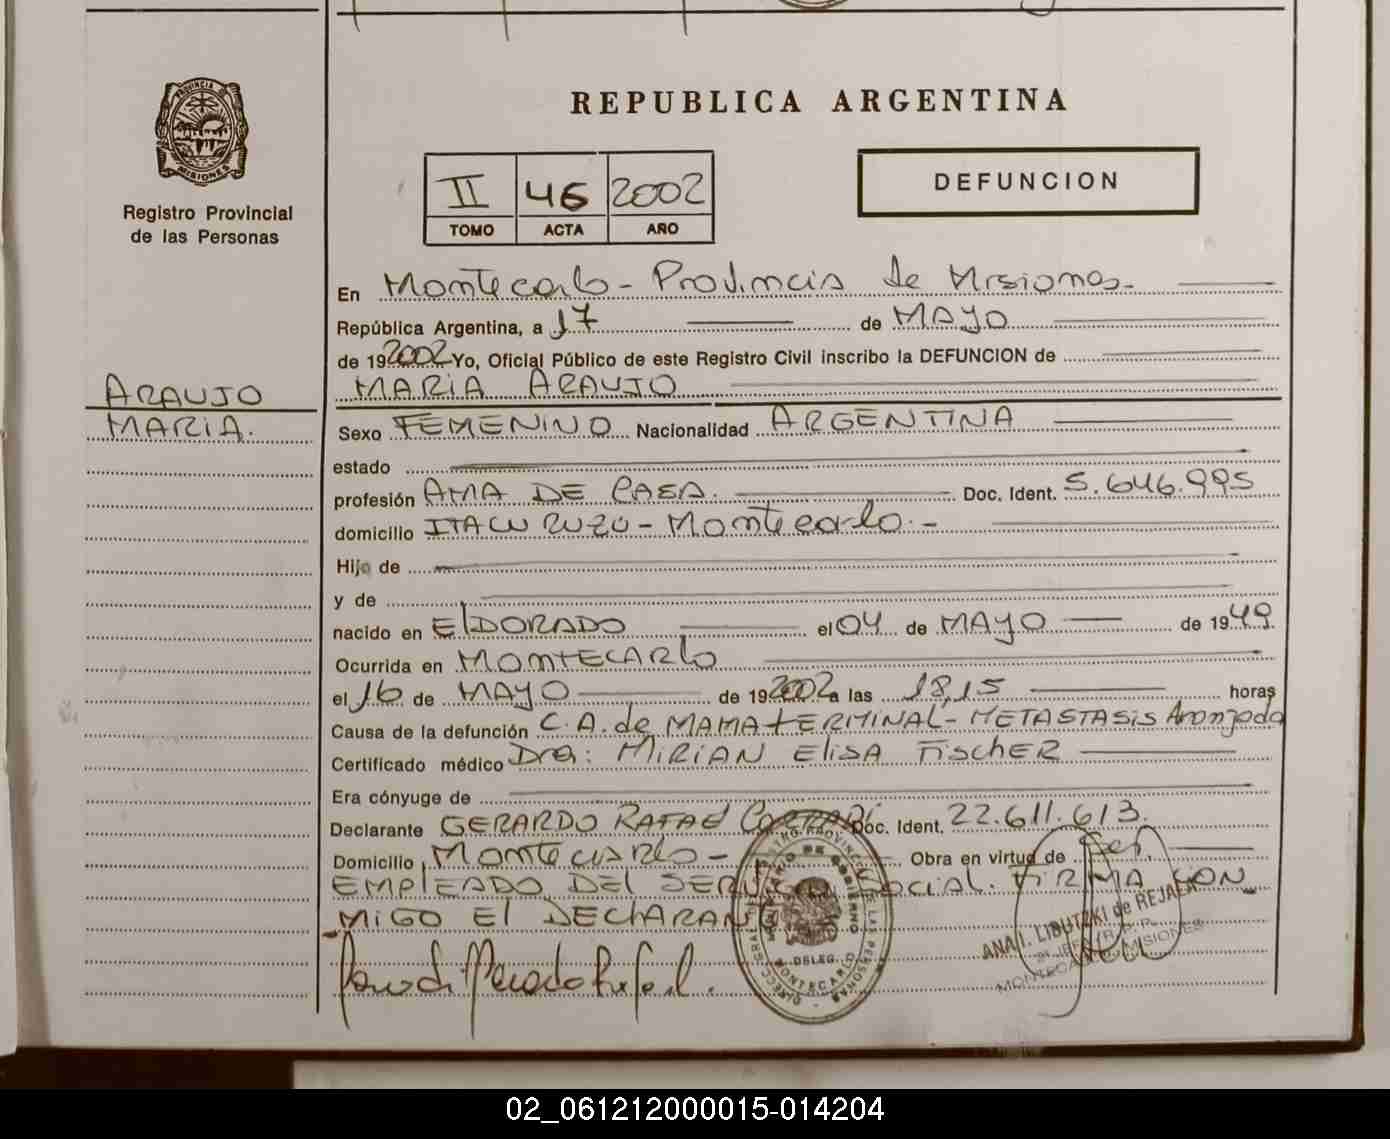 PROVINCIA DE
MISIONES
Registro Provincial
de las Personas
ARAUJO
MARIA.
REPUBLICA ARGENTINA
II 46 2002
TOMO ACTA AÑO
DEFUNCION
En Montecarlo - Provincia de Misiones.
República Argentina, a 17 de MAYO
de 192002 Yo, Oficial Público de este Registro Civil inscribo la DEFUNCION de
MARIA ARAUJO
Sexo FEMENINO Nacionalidad ARGENTINA
estado
profesión AMA DE CASA. Doc. Ident. 5.646.995
domicilio ITACURUZU - Montecarlo. -
Hijo de
y de
nacido en ElDORADO el 04 de MAYO de 1949
Ocurrida en MONTECARLO
el 16 de MAYO de 192002 a las 18,15 horas
Causa de la defunción C.A. de MAMA TERMINAL - METASTASIS Avanzada
Certificado médico Dra: MIRIAN ELISA FISCHER
Era cónyuge de
Declarante GERARDO RAFAEL Doc. Ident. 22.611.613.
Domicilio MONTECARLO - Obra en virtud de Ser
EMPLEADO DEL SERVICIO SOCIAL. FIRMA CON
MIGO El DECLARANTE
MINISTERIO DE GOBIERNO
DELEG.
MONTECARLO
ANA I. LIBUTZKI de REJALA
MONTECARLO MISIONES
02_061212000015-014204